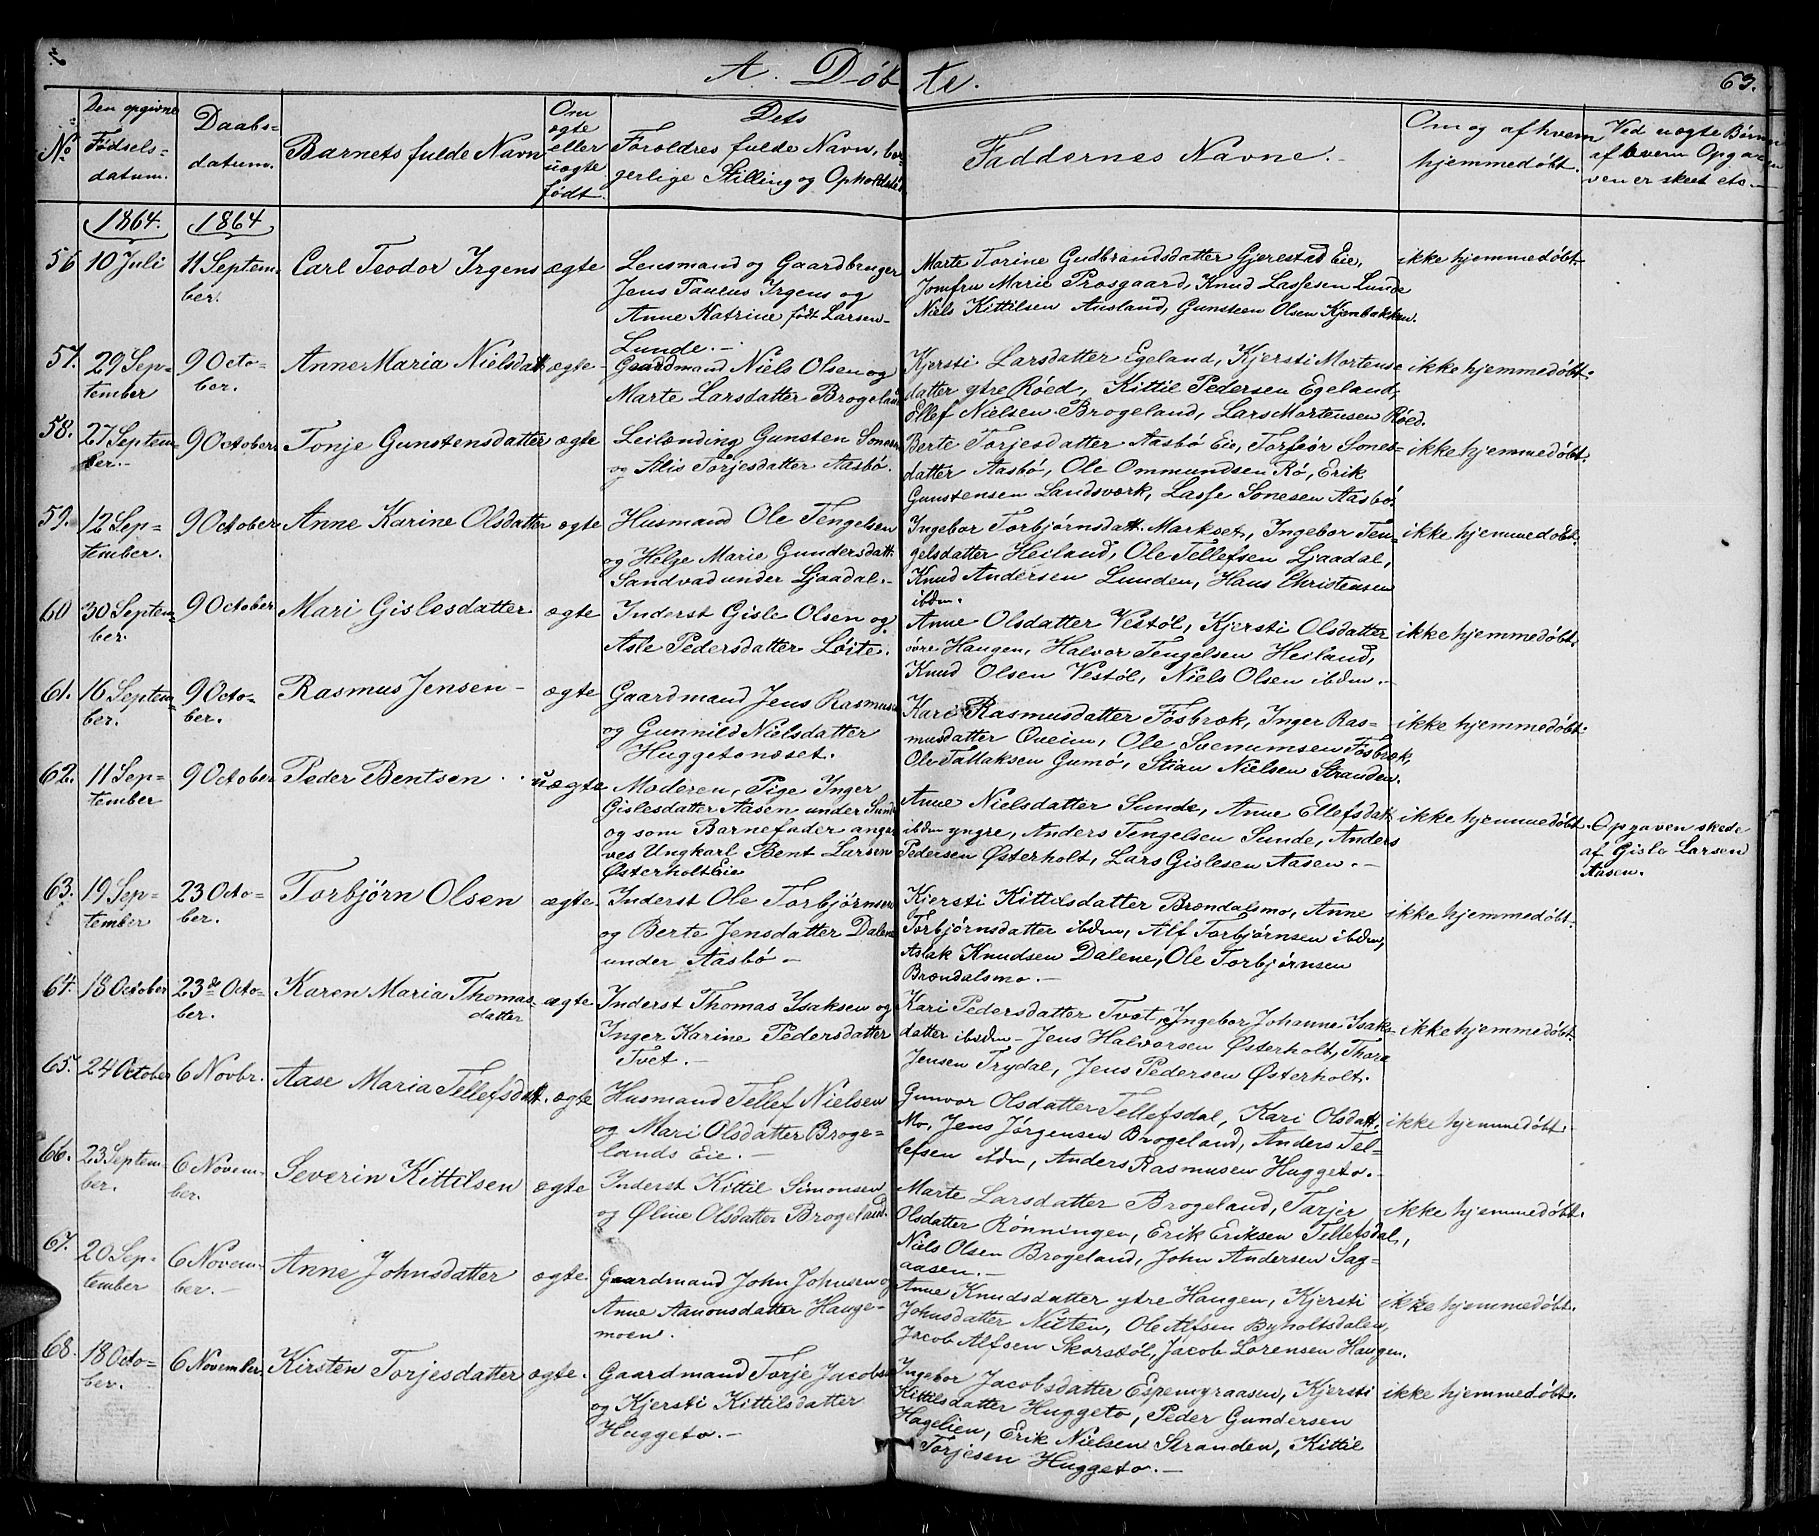 A. Døbte. 63.
No
Den opgivne Fødselsdatum.
Daabsdatum.
Barnets fulde Navn
Om ægte eller uægte født.
Dets Forældres fulde Navn, borgerlige Stilling og Opholdsted
Faddernes Navne.
Om og af hvem hjemmedøbt.
Ved uægte Børn af hvem Opgaven er skeet etc.
1864. 1864
56 10 Juli 11 September. Carl Teodor Irgens ægte
Lensmand og Gaardbruger
Jens Paulus Irgens og
Anne Katrine født Larsen
Lunde.
Marte Torine Gudbrandsdatter Gjerestad Eie,
Jomfru Marie Prosgaard, Knud Lassesen Lunde
Niels Kittilsen Ausland, Gunsteen Olsen Kjenbakken.
ikke hjemmedøbt.
57. 29 September 9 October. Anne Maria Nielsdatt ægte
Gaardmand Niels Olsen og
Marte Larsdatter Brogeland
Kjersti Larsdatter Egeland, Kjersti Mortens
datter ytre Røed, Kittil Pedersen Egeland,
Ellef Nielsen Brogeland, Lars Mortensen Røed.
ikke hjemmedøbt.
58. 27 September. 9 October Tonje Gunstensdatter ægte
Leilænding Gunsten Sonesen
og Alis Torjesdatter Aasbø.
Berte Torjesdatter Aasbø Eie, Torbør Sones-
datter Aasbø, Ole Ommundsen Rø, Erik
Gunstensen Landsværk, Lasse Sonesen Aasbø.
ikke hjemmedøbt.
59. 12 September. 9 October. Anne Karine Olsdatter ægte
Husmand Ole Tengelsen
og Helge Marie Gundersdatt.
Sandvad under Ljaadal.
Ingebor Torbjørnsdatt. Markset, Ingebor Ten-
gelsdatter Heiland, Ole Tellefsen Ljaadal,
Knud Andersen Lunden, Hans Christensen
ibdm.
ikke hjemmedøbt.
60 30 September. 9 October Mari Gislesdatter. ægte
Inderst Gisle Olsen og
Asle Pedersdatter Løite.
Anne Olsdatter Vestøl, Kjersti Olsdatter
øvre Haugen, Halvor Tengelsen Heiland,
Knud Olsen Vestøl, Niels Olsen ibdm.
ikke hjemmedøbt.
61. 16 September. 9 October. Rasmus Jensen ægte
Gaardmand Jens Rasmusen
og Gunnild Nielsdatter
Huggetonæset.
Kari Rasmusdatter Fosbræk, Inger Ras-
musdatter Queim, Ole Svenumsen Fosbræk,
Ole Tallaksen Gumø, Stian Nielsen Stranden.
ikke hjemmedøbt.
62. 11 September 9 October Peder Bentsen uægte
Moderen, Pige Inger
Gislesdatter Aasen under Sunde
og som Barnefader angi-
ves Ungkarl Bent Larsen
Østerholt Eie
Anne Nielsdatter Sunde, Anne Ellefsdatt
ibdm yngre, Anders Tengelsen Sunde, Anders
Pedersen Østerholt, Lars Gislesen Aasen.
ikke hjemmedøbt.
Opgaven skede
af Gisle Larsen
Aasen.
63. 19 September 23 October. Torbjørn Olsen ægte
Inderst Ole Torbjørnsen
og Berte Jensdatter Dalene
under Aasbø
Kjersti Kittilsdatter Brøndalsmo, Anne
Torbjørnsdatter ibdm, Alf Torbjørnsen ibdm,
Aslak Knudsen Dalene, Ole Torbjørnsen
Brøndalsmo.
ikke hjemmedøbt.
64. 18 October 23de October. Karen Maria Thomasdatter ægte
Inderst Thomas Isaksen og
Inger Karine Pedersdatter
Tvet.
Kari Pedersdatter Tvet, Ingebor Johanne Isaks-
datter ibdm - Jens Halvorsen Østerholt, Thora
Jensen Trydal, Jens Pedersen Østerholt.
ikke hjemmedøbt.
65. 24 October 6 Novbr. Aase Maria Tellefsdatt. ægte
Husmand Tellef Nielsen
og Mari Olsdatter Broge-
lands Eie.
Gunvor Olsdatter Tellefsdal, Kari Olsdatt.
Mo, Jens Jørgensen Brogeland, Anders Tel-
lefsen ibdm, Anders Rasmusen Huggeto.
ikke hjemmedøbt.
66. 23 September. 6 November. Severin Kittilsen ægte
Inderst Kittil Simonsen
og Øline Olsdatter Brogeland.
Marte Larsdatter Brogeland, Tarjer
Olsdatter Rønningen, Erik Eriksen Tellefsdal,
Niels Olsen Brogeland, John Andersen Sag-
aasen.
ikke hjemmedøbt.
67. 20 September 6 November. Anne Johnsdatter ægte.
Gaardmand John Johnsen og
Anne Aanonsdatter Hauge-
moen.
Anne Knudsdatter ytre Haugen, Kjersti
Johnsdatter Nilten, Ole Alfsen Byholtsdalen,
Jacob Alfsen Skorstøl, Jacob Lorensen Haugen.
ikke hjemmedøbt.
68. 18 October. 6 November. Kirsten Torjesdatter ægte.
Gaardmand Torje Jacobsen
og Kjersti Kittilsdatter
Huggeto.
Ingebor Jacobsdatter Espemyraasen, Kjersti
Kittilsdatter Huggeto, Peder Gundersen
Hagelien, Erik Nielsen Stranden, Kittil
Torjesen Huggeto.
ikke hjemmedøbt.